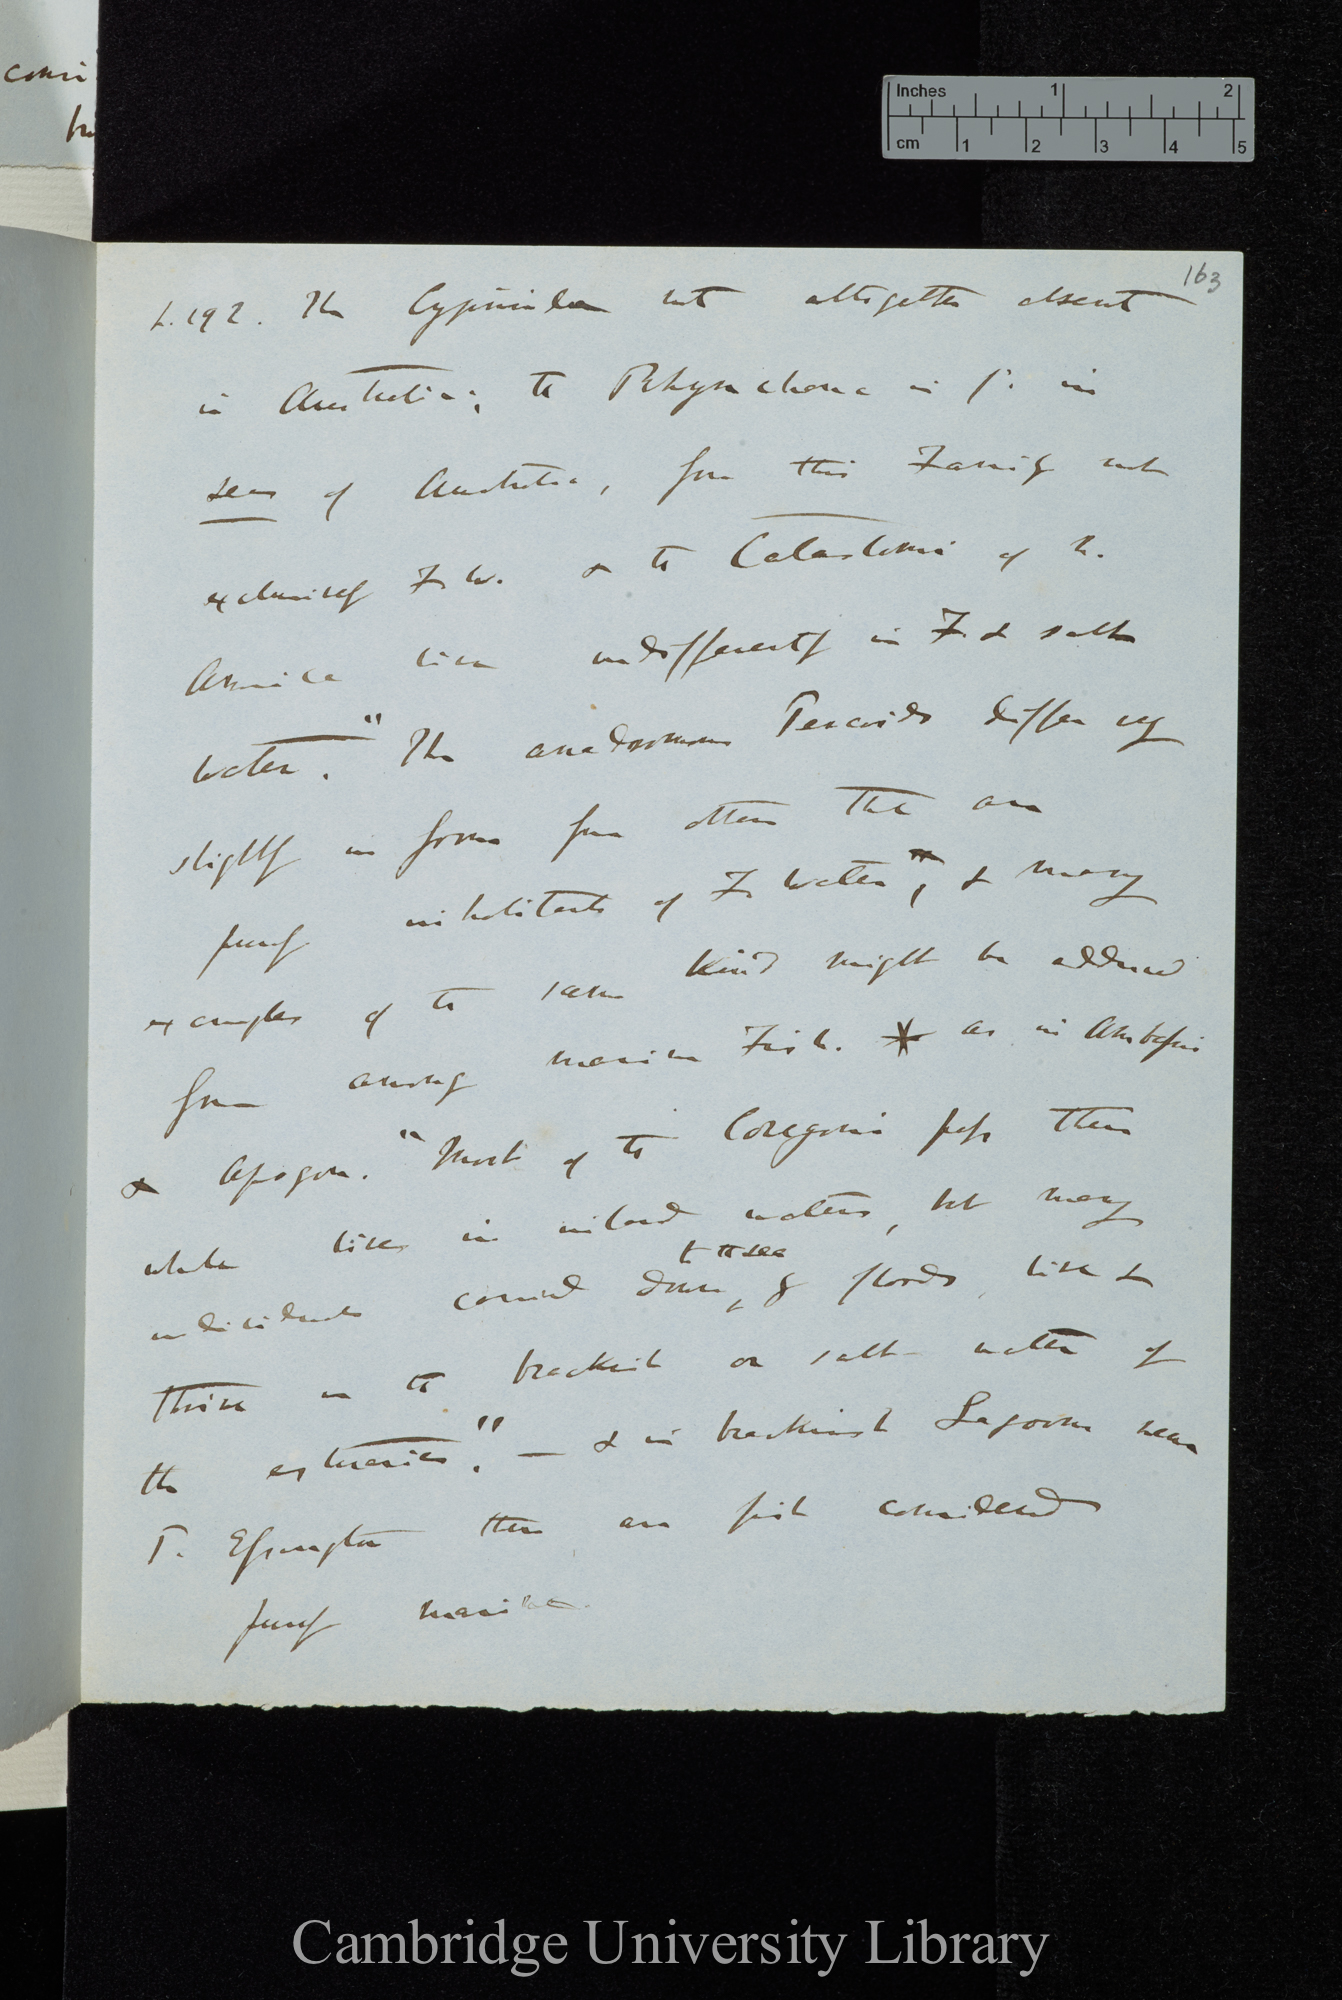 coni
Inches 1 2
cm 1 2 3 4 5
163
p. 192. The Cyprinidæ not altogether absent
in Australia; the Rhynchana is f. in
seas of Australia, for this Family not
exclusively F. W. & the Catastomi of N.
America live indifferently in F. & salt
water." The anadromous Percoids differ very
slightly in form from others that are
purely inhabitants of F. Water", & many
examples of the same kind might be adduced
from among marine Fish. * as in Ambassis
& Apogon. "Most of the Coregoni pass their
whole lives in inland waters, but many
to the sea
individuals carried down, by floods, live &
thrive in the brackish or salt water of
the estuaries". — & in brackish Lagoons near
P. Essington there are fish considered
purely marine.
Cambridge University Library